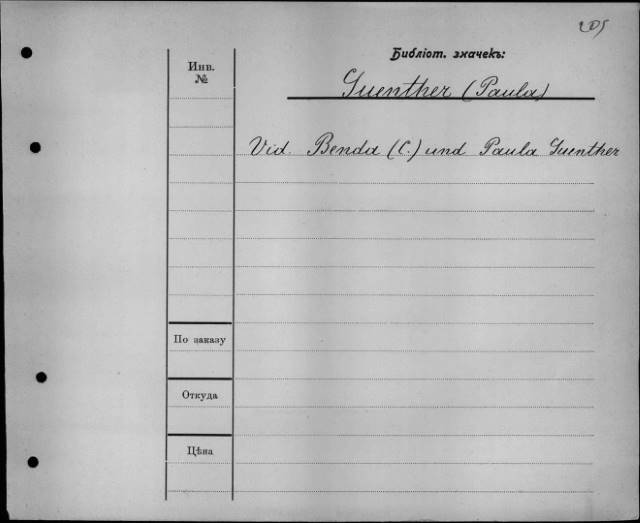 205
Библіот. значекъ:
Инв.
№
Guenther (Paula)
Vid. Benda (C.) und Paula Guenther
По заказу
Откуда
Цѣна